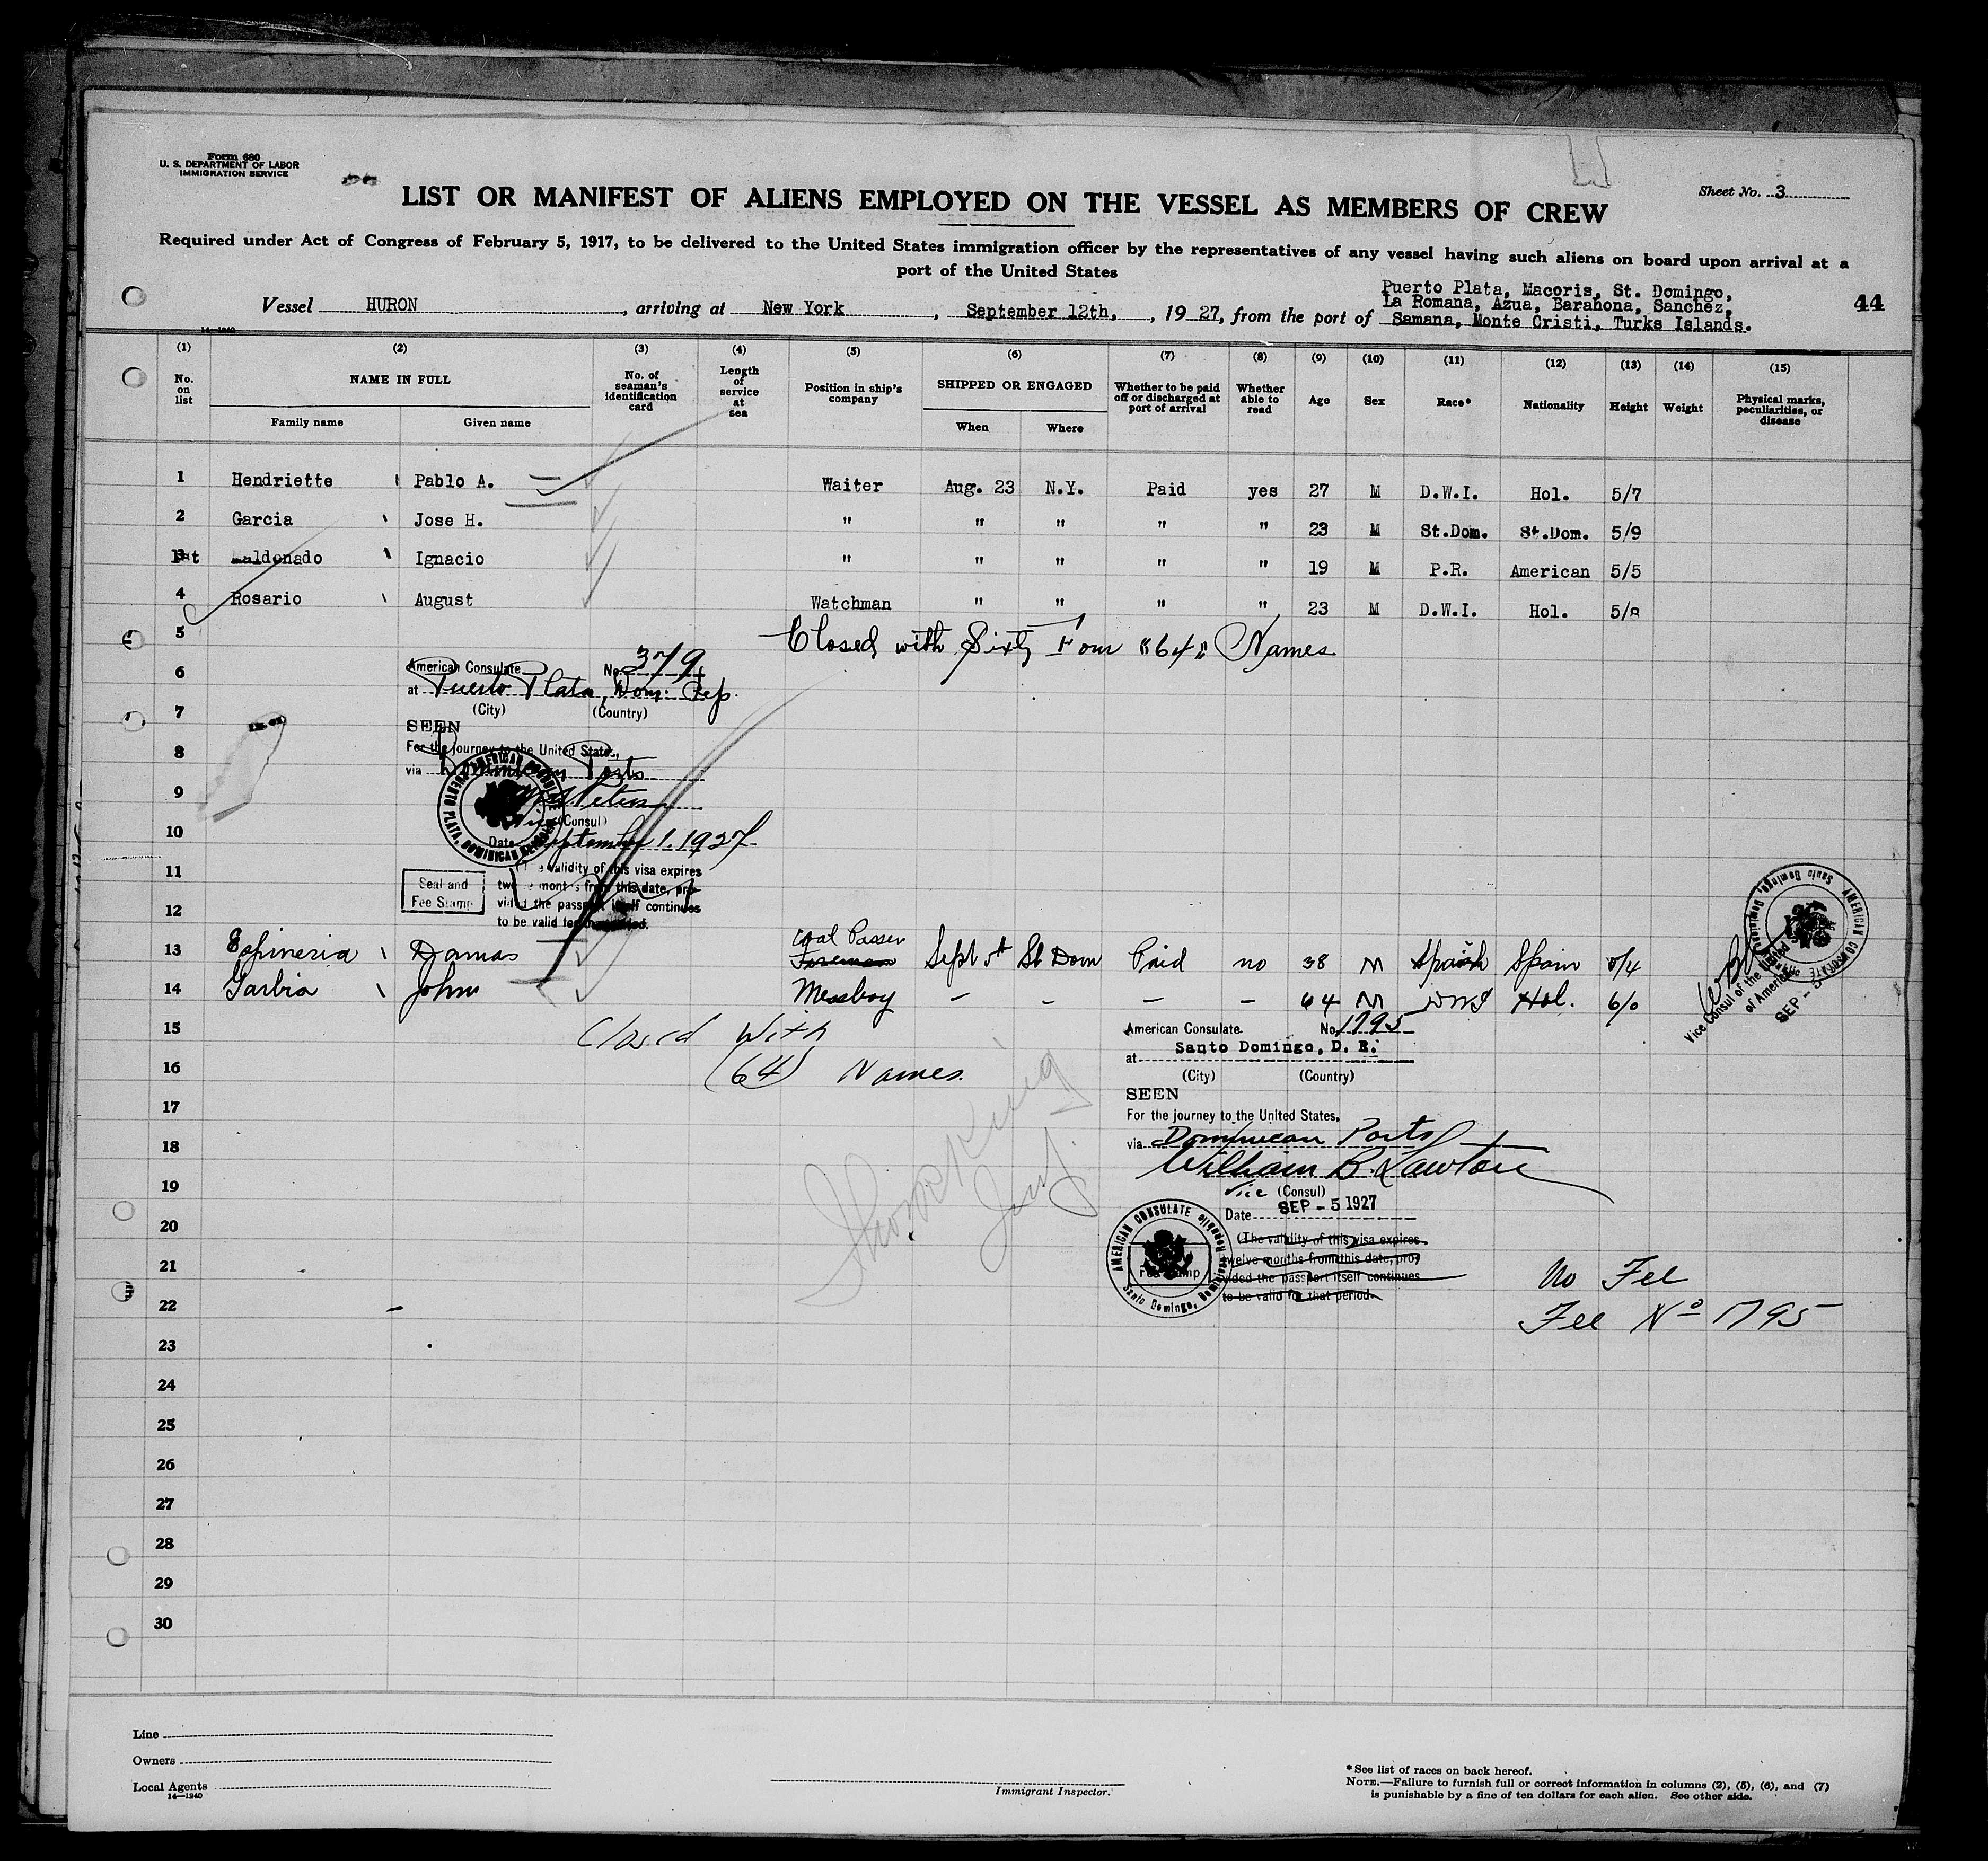 Form 680
U. S. DEPARTMENT OF LABOR
IMMIGRATION SERVICE
Sheet No. 3
LIST OR MANIFEST OF ALIENS EMPLOYED ON THE VESSEL AS MEMBERS OF CREW
Required under Act of Congress of February 5, 1917, to be delivered to the United States immigration officer by the representatives of any vessel having such aliens on board upon arrival at a
port of the United States
Puerto Plata, Macoris, St. Domingo,
La Romana, Azua, Barahona, Sanchez,
Vessel HURON, arriving at New York, September 12th, 1927, from the port of Samana, Monte Cristi, Turks Islands.
44
14-1240
(1) (2) (3) (4) (5) (6) (7) (8) (9) (10) (11) (12) (13) (14) (15)
No. on list NAME IN FULL No. of seaman's identification card Length of service at sea Position in ship's company SHIPPED OR ENGAGED Whether to be paid off or discharged at port of arrival Whether able to read Age Sex Race* Nationality Height Weight Physical marks, peculiarities, or disease
Family name Given name When Where
1 Hendriette Pablo A. Waiter Aug. 23 N.Y. Paid yes 27 M D.W.I. Hol. 5/7
2 Garcia Jose H. " " " " " 23 M St.Dom. St.Dom. 5/9
3 Maldonado Ignacio " " " " " 19 M P.R. American 5/5
4 Rosario August Watchman " " " " 23 M D.W.I. Hol. 5/8
5 Closed with Sixty Four "64" Names
6 American Consulate No. 379
at Puerto Plata, Dom. Rep.
7 (City) (Country)
SEEN
8 For the journey to the United States,
via Dominican Ports
9
(Consul)
10 Date September 1. 1927
11 The validity of this visa expires
Seal and twelve months from this date, pro-
Fee Stamp vided the passport itself continues
12 to be valid for
AMERICAN CONSULATE PUERTO PLATA, DOMINICAN REPUBLIC
Coal Passer
13 Espineria Damas Fireman Sept 5th St Dom Paid no 38 M Spanish Spain 5/4
14 Garbia John Messboy - - - - 64 M DWI Hol. 6/0
AMERICAN CONSULATE Santo Domingo, Dominican
Vice Consul of the United States
of America
SEP - 5
15 Closed With
16 (64) Names
American Consulate No. 1795
at Santo Domingo, D. R.
(City) (Country)
17 SEEN
For the journey to the United States,
18 via Dominican Ports
William B. Lawton
19 Vice (Consul)
Date SEP - 5 1927
20 (The validity of this visa expires
twelve months from this date, pro-
21 vided the passport itself continues
to be valid for that period.
AMERICAN CONSULATE Santo Domingo, Dominican Republic
No Fee
22 Fee No 1795
23
24
25
26
27
28
29
30
Line
Owners
Local Agents
14—1240
Immigrant Inspector.
*See list of races on back hereof.
NOTE.—Failure to furnish full or correct information in columns (2), (5), (6), and (7)
is punishable by a fine of ten dollars for each alien. See other side.